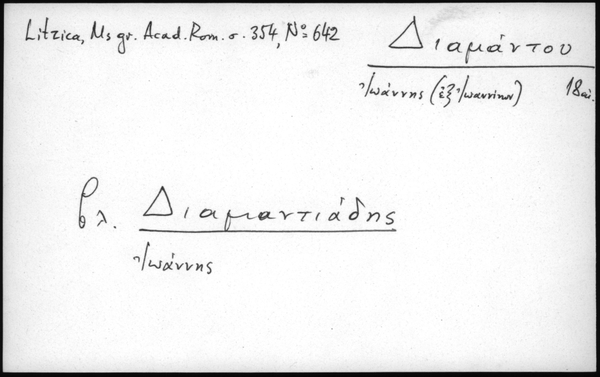 Litzica, Ms gr. Acad. Rom. σ. 354, Nº 642
Διαμάντου
Ἰωάννης (ἐξ Ἰωαννίνων) 18 αἰ.
βλ. Διαμαντιάδης
Ἰωάννης